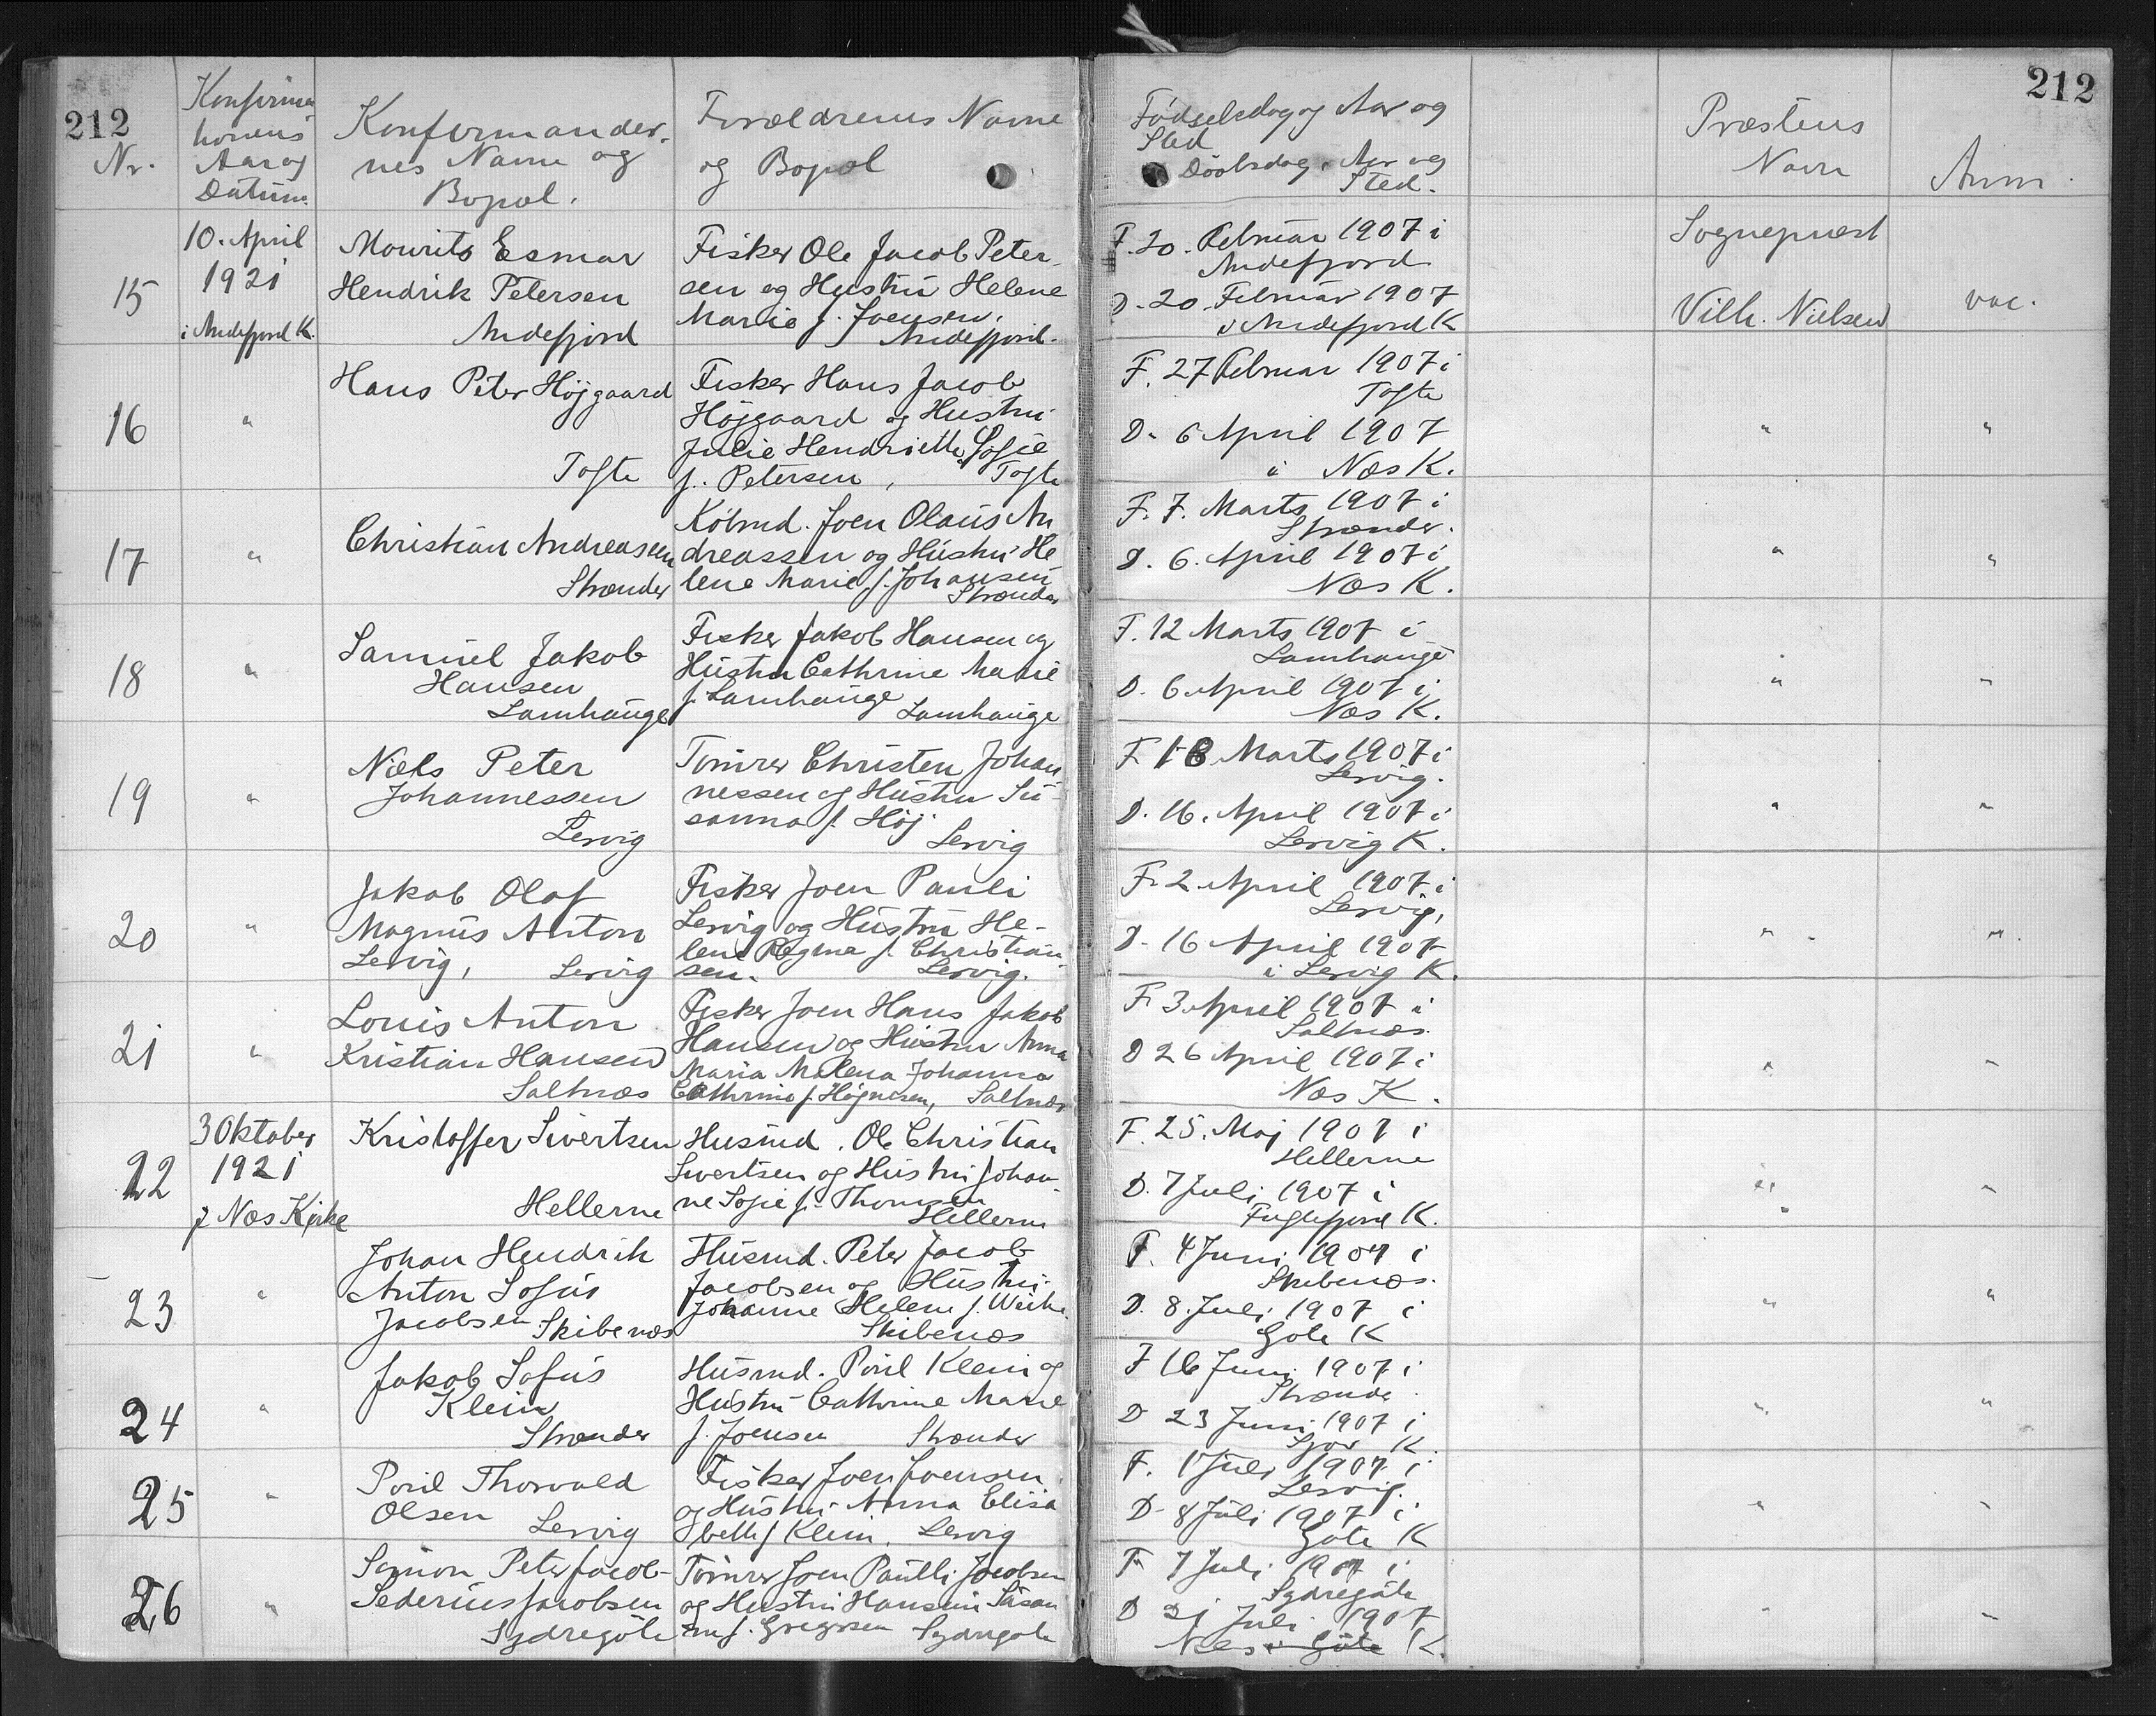 212
212
Nr.
Konfirma
tionens
Aar og
Datum.
Konfirmander-
nes Navn og
Bopæl.
Forældrenes Navne
og Bopæl
Fødselsdag og Aar og
Sted
Daabsdag, Aar og
Sted.
Præstens
Navn
Anm.
15
10. April
1921
i Andefjord K.
Mourits Esmar
Hendrik Petersen
Andefjord
Fisker Ole Jacob Peter-
sen og Hustru Helene
Marie f. Joensen,
Andefjord.
F. 20. Februar 1907 i
Andefjord
D. 20. Februar 1907
i Andefjord K
Sognepræst
Vilh. Nielsen
vac.
16
"
Hans Peter Højgaard
Tofte
Fisker Hans Jacob
Højgaard og Hustru
Julie Hendriette Sofie
f. Petersen, Tofte
F. 27 Februar 1907 i
Tofte
D. 6 April 1907
i Næs K.
"
"
17
"
Christian Andreasen
Strænder
Købmd. Joen Olaus An
dreassen og Hustru He
lene Marie f. Johansen
Strænder
F. 7. Marts 1907 i
Strænder.
D. 6. April 1907 i
Næs K.
"
"
18
"
Samuel Jakob
Hansen
Lamhauge
Fisker Jakob Hansen og
Hustru Cathrine Marie
f. Lamhauge Lamhauge
F. 12 Marts 1907 i
Lamhauge
D. 6 April 1907 i
Næs K.
"
"
19
"
Niels Peter
Johannessen
Lervig
Tømrer Christen Johan
nessen og Hustru Su-
sanna f. Høj
Lervig
F. 18 Marts 1907 i
Lervig.
D. 16. April 1907 i
Lervig K.
"
"
20
"
Jakob Olaf
Magnus Anton
Lervig, Lervig
Fisker Joen Pauli
Lervig og Hustru He-
lene Regine f. Christian-
sen. Lervig.
F. 2 April 1907 i
Lervig,
D. 16 April 1907
i Lervig K.
"
"
21
"
Louis Anton
Kristian Hansen
Saltnæs
Fisker Joen Hans Jakob
Hansen og Hustru Anna
Maria Malena Johanna
Cathrine f. Høgnesen, Saltnæs
F 3 April 1907 i
Saltnæs.
D 26 April 1907 i
Næs K.
"
"
22
3 Oktober
1921
i Næs Kirke
Kristoffer Sivertsen
Hellerne
Husmd. Ole Christian
Sivertsen og Hustru Johan-
ne Sofie f. Thomsen
Hellerne
F. 25. Maj 1907 i
Hellerne
D. 7 Juli 1907 i
Fuglefjord K.
"
"
23
"
Johan Hendrik
Anton Sofus
Jacobsen Skibenæs
Husmd. Peter Jacob
Jacobsen og Hustru
Johanne Helene f. Weihe
Skibenæs
F. 4 Juni 1907 i
Skibenæs.
D. 8. Juli 1907 i
Gøte K
"
"
24
"
Jakob Sofus
Klein
Strænder
Husmd. Poul Klein og
Hustru Cathrine Marie
f. Joensen Strænder
F 16 Juni 1907 i
Strænde.
D 23 Juni 1907 i
Sjov K.
"
"
25
"
Poul Thorvald
Olsen Lervig
Fisker Joen Joensen
og Hustru Anna Elisa
beth f Klein, Lervig
F. 1 Juli 1907 i
Lervig.
D 8 Juli 1907 i
Gøte K
"
"
26
"
Simon Peter Jacob-
Sederius Jacobsen
Sydregøte
Tømrer Joen Paulli Jacobsen
og Hustru Hansine Susan
na f. Gregersen Sydregøte
F 7 Juli 1907 i
Sydregøte
D 21 Juli 1907
Næs i Gøte K.
"
"